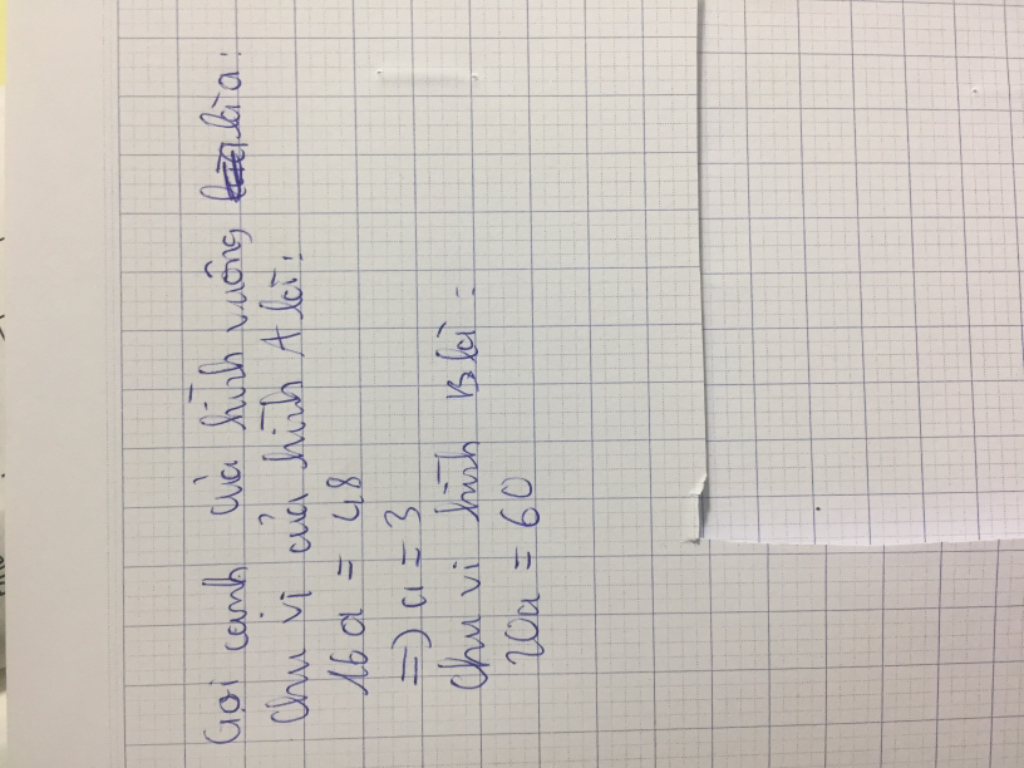 Gọi cạnh của hình vuông là a:
Chu vi của hình A là:
16a = 48
=> a = 3
Chu vi hình B là:
20a = 60